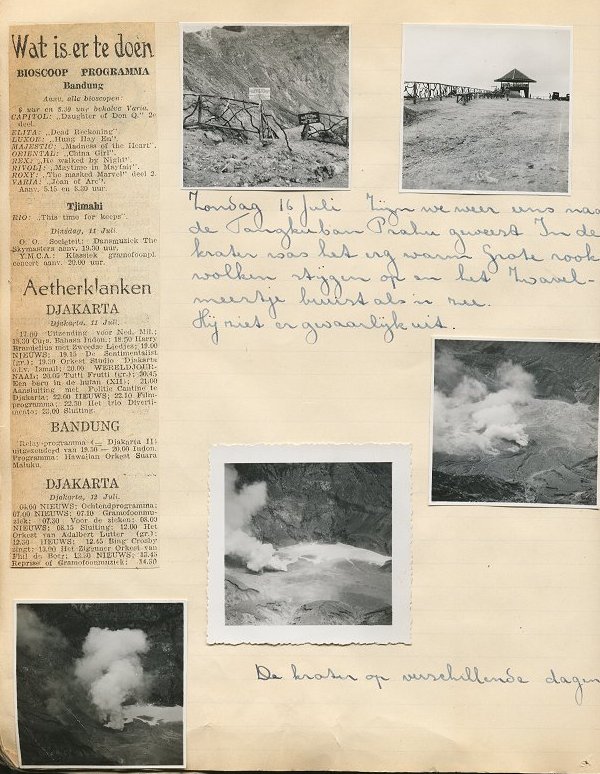 Wat is er te doen
BIOSCOOP PROGRAMMA
Bandung
Aanv. alle bioscopen:
6 uur en 8.30 uur behalve Varia.
CAPITOL: „Daughter of Don Q." 2e
deel.
ELITA: „Dead Reckoning".
LUXOR: „Hung Hay En".
MAJESTIC: „Madness of the Heart".
ORIENTAL: „China Girl".
REX: „He walked by Night".
RIVOLI: „Maytime in Mayfair".
ROXY: „The masked Marvel" deel 2.
VARIA: „Joan of Arc".
Aanv. 5.15 en 8.30 uur.
Tjimahi
RIO: „This time for keeps".
Dinsdag, 11 Juli
O. O. Societeit: Dansmuziek The
Skymasters aanv. 19.30 uur.
Y.M.C.A.: Klassiek gramofoonpl.
concert aanv. 20.00 uur.
Aetherklanken
DJAKARTA
Djakarta, 11 Juli.
17.00 Uitzending voor Ned. Mil.;
18.30 Curs. Bahasa Indon.; 18.50 Harry
Brandelius met Zweedse Liedjes; 19.00
NIEUWS; 19.15 De Sentimentalist
(gr.); 19.30 Orkest Studio Djakarta
o.l.v. Ismail; 20.00 WERELDJOUR-
NAAL; 20.05 Tutti Frutti (gr.); 20.45
Een boru in de hutan (XII); 21.00
Aansluiting met Politie Cantine te
Djakarta; 22.00 NIEUWS; 22.10 Film-
programma; 22.30 Het trio Diverti-
mento; 23.00 Sluiting.
BANDUNG
Relay-programma (= Djakarta II)
uitgezonderd van 19.30 — 20.00 Indon.
Programma: Hawaiian Orkest Suara
Maluku.
DJAKARTA
Djakarta, 12 Juli.
06.00 NIEUWS; Ochtendprogramma;
07.00 NIEUWS; 07.10 Gramofoonmu-
ziek; 07.30 Voor de zieken; 08.00
NIEUWS; 08.15 Sluiting; 12.00 Het
Orkest van Adalbert Lutter (gr.);
12.30 NIEUWS; 12.45 Bing Crosby
zingt; 13.00 Het Zigeuner Orkest van
Phil de Boer; 13.30 NIEUWS; 13.45
Reprise of Gramofoonmuziek; 14.30
Zondag 16 Juli zijn we weer eens naar
de Tangkuban Prahu geweest In de
krater was het erg warm Grote rook
wolken stijgen op en het zwavel-
meertje bruist als n zee.
Hij ziet er gevaarlijk uit.
De krater op verschillende dagen